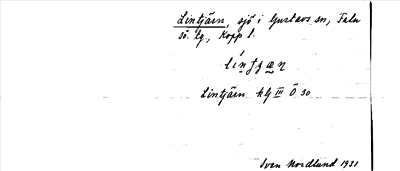 Lintjärn, sjö i Gustavs sn, Falu
sö. tg, Kopp l.
Lintjärn hlj III Ö 30
Sven Nordlund 1931